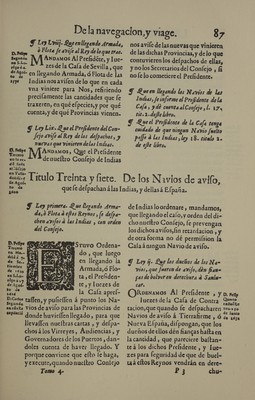 De la navegacion, y viage. 87
¶ Ley Lviij. Que en llegando Armada,
ò Flota se avise al Rey de lo que trae.
MANDAMOS Al Presidente, y Iue-
zes de la Casa de Sevilla, que
en llegando Armada, ò Flota de las
Indias nos avisen de lo que en cada
vna viniere para Nos, refiriendo
precisamente las cantidades que se
traxeren, en què especies, y por què
cuenta, y de què Provincias vienen.
¶ Ley Lix. Que el Presidente del Con-
sejo avise al Rey de los despachos, y
nuevas que vinieren de las Indias.
MANDAMOS, Que el Presidente
de nuestro Consejo de Indias
nos avise de las nuevas que vinieren
de las dichas Provincias, y de lo que
contuvieren los despachos de ellas,
y no los Secretarios del Consejo, si
no se lo cometiere el Presidente.
¶ Que en llegando los Navios de las
Indias, se informe el Presidente de la
Casa, y dè cuenta al Consejo, l.
de este libro.
¶ Que el Presidente de la Casa tenga
cuidado de que ningun Navio suelto
passe à las Indias, ley 18. titulo
de este libro.
Titulo Treinta y siete. De los Navios de aviso,
que se despachan à las Indias, y dellas à España.
¶ Ley primera. Que llegando Arma-
da, ò Flota à estos Reynos, se despa-
chen avisos à las Indias, con orden
del Consejo.
ESTUVO Ordena-
do, que luego
en llegando la
Armada, ò Flo-
ta, el Presiden-
te, y Iuezes de
la Casa apres-
tassen, y pusiessen à punto los Na-
vios de aviso para las Provincias de
donde huviessen llegado, para que
llevassen nuestras cartas, y despa-
chos à los Virreyes, Audiencias, y
Governadores de los Puertos, dan-
doles cuenta de haver llegado. Y
porque conviene que esto se haga,
y execute, quando nuestro Consejo
de Indias lo ordenare, mandamos,
que llegando el caso, y orden del di-
cho nuestro Consejo, se prevengan
los dichos avisos, sin retardacion, y
de otra forma no dè permission la
Casa à ningun Navio de aviso.
¶ Ley ij. Que los dueños de los Na-
vios, que fueren de aviso, dèn fian-
ças de bolver en derechura à Sanlu-
car.
ORDENAMOS Al Presidente, y
Iuezes de la Casa de Contra
tacion, que quando se despacharen
Navios de aviso à Tierrafirme, ò
Nueva España, dispongan, que los
dueños de ellos dèn fianças hasta en
la cantidad, que pareciere bastan-
te à los dichos Presidente, y Iue-
zes para seguridad de que de buel-
ta à estos Reynos vendràn en dere-
Tomo 4. P 3 chu-